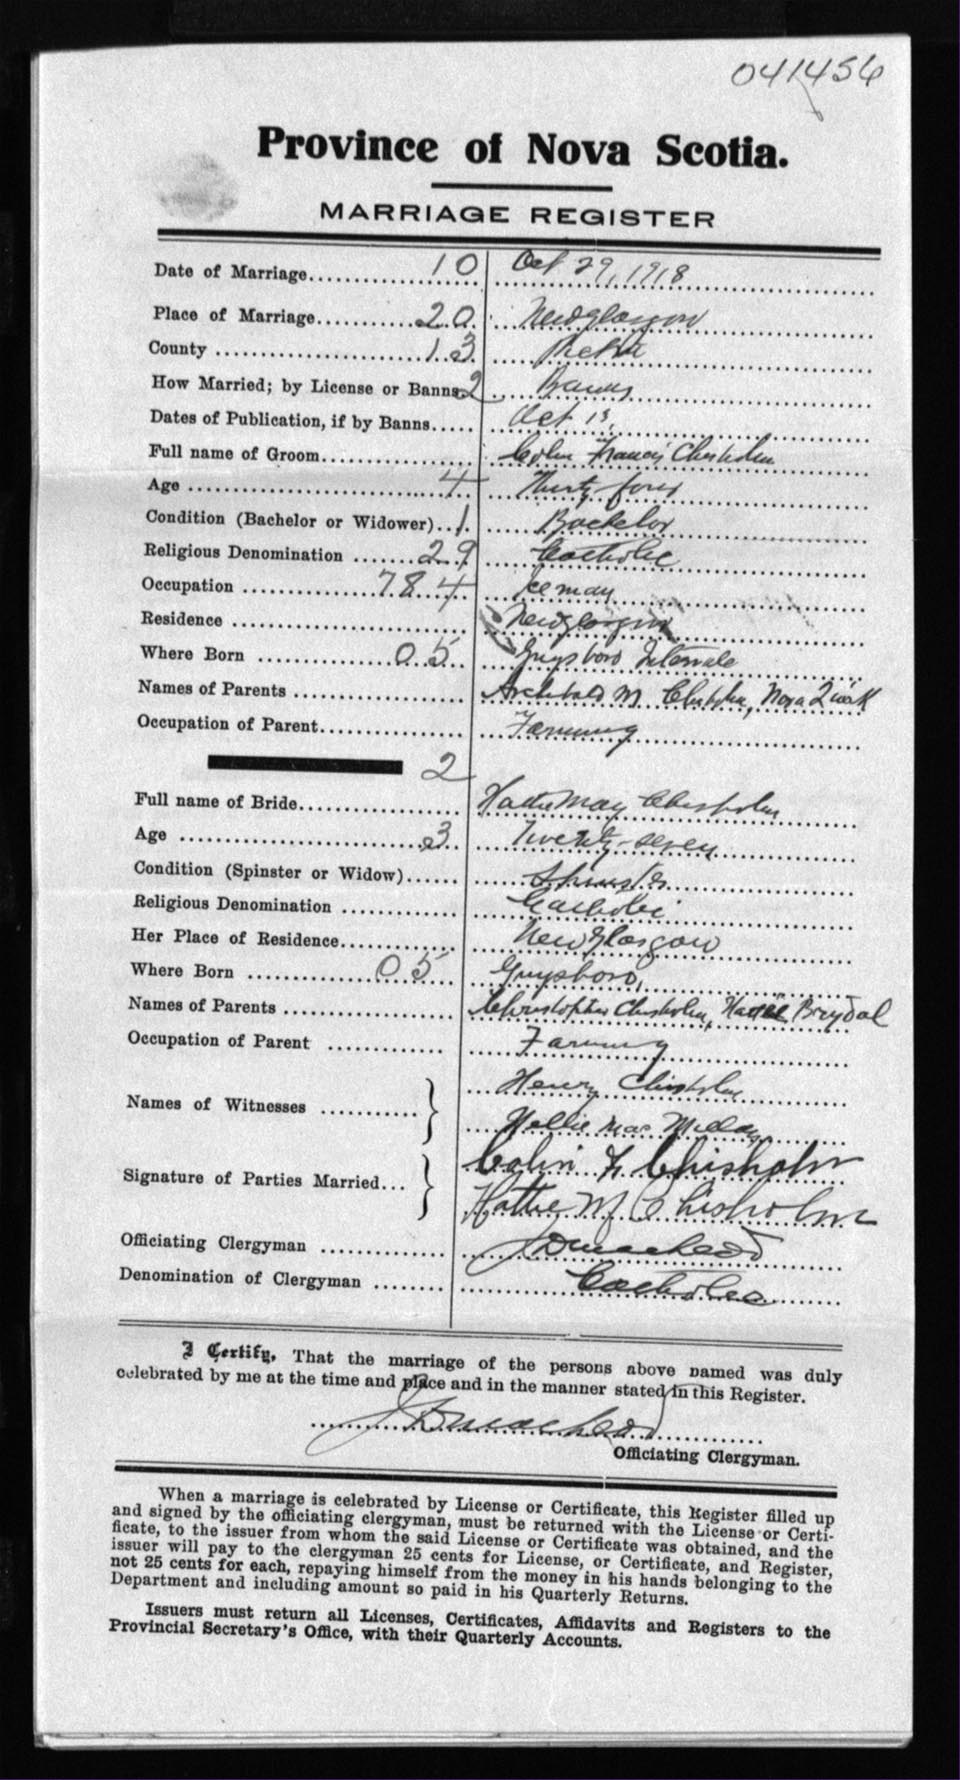 041456
Province of Nova Scotia.
MARRIAGE REGISTER
Date of Marriage.................. 10 Oct 29, 1918
Place of Marriage.................. 20 New Glasgow
County .................. 13 Pictou
How Married; by License or Banns 2 Banns
Dates of Publication, if by Banns..... Oct 13,
Full name of Groom.................. Colin Francis Chisholm
Age .................. 4 Thirty-four
Condition (Bachelor or Widower).. 1. Bachelor
Religious Denomination ...... 29 Catholic
Occupation .................. 784 Iceman
Residence .................. New Glasgow
Where Born .................. 05 Guysboro Intervale
Names of Parents .................. Archibald M Chisholm, Nora
Occupation of Parent.................. Farming
2
Full name of Bride.................. Hattie May Chisholm
Age .................. 3 Twenty-seven
Condition (Spinster or Widow)...... Spinster
Religious Denomination ............ Catholic
Her Place of Residence............ New Glasgow
Where Born ............ 05 Guysboro,
Names of Parents .................. Christopher Chisholm, Hattie
Occupation of Parent ............ Farming
Names of Witnesses .......... } Henry Chisholm
Nellie Mac
Signature of Parties Married... } Colin F Chisholm
Hattie M Chisholm
Officiating Clergyman ............ J D MacLeod
Denomination of Clergyman ........ Catholic
I Certify, That the marriage of the persons above named was duly
celebrated by me at the time and place and in the manner stated in this Register.
J D MacLeod
Officiating Clergyman.
When a marriage is celebrated by License or Certificate, this Register filled up
and signed by the officiating clergyman, must be returned with the License or Certi-
ficate, to the issuer from whom the said License or Certificate was obtained, and the
issuer will pay to the clergyman 25 cents for License, or Certificate, and Register,
not 25 cents for each, repaying himself from the money in his hands belonging to the
Department and including amount so paid in his Quarterly Returns.
Issuers must return all Licenses, Certificates, Affidavits and Registers to the
Provincial Secretary's Office, with their Quarterly Accounts.